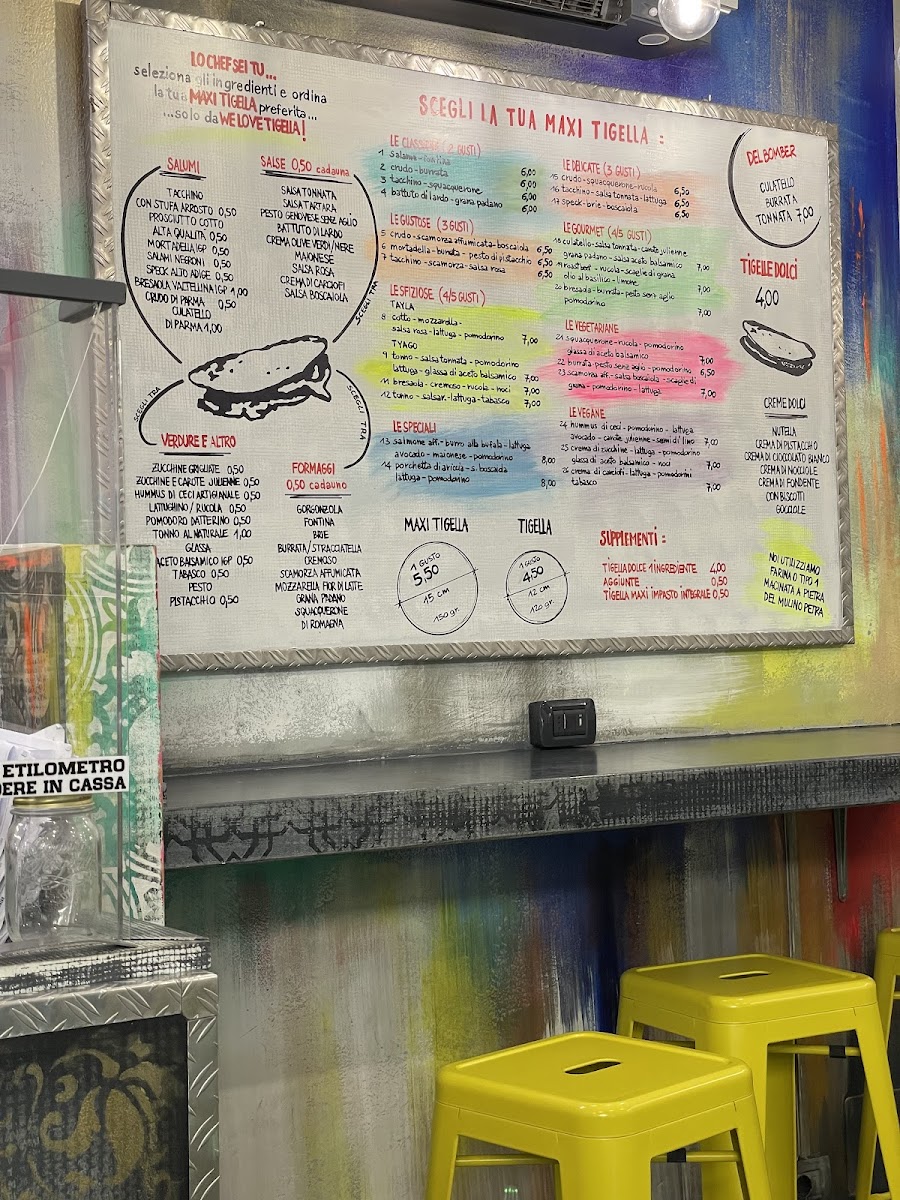 LO CHEF SEI TU...
seleziona gli ingredienti e ordina
la tua MAXI TIGELLA preferita...
...solo da WE LOVE TIGELLA!
SALUMI
TACCHINO
CON STUFA ARROSTO 0,50
PROSCIUTTO COTTO
ALTA QUALITÀ 0,50
MORTADELLA IGP 0,50
SALAMI NEGRONI 0,50
SPECK ALTO ADIGE 0,50
BRESAOLA VALTELLINA IGP 1,00
CRUDO DI PARMA 0,50
CULATELLO
DI PARMA 1,00
SALSE 0,50 cadauna
SALSA TONNATA
SALSA TARTARA
PESTO GENOVESE SENZ'AGLIO
BATTUTO DI LARDO
CREMA OLIVE VERDI/NERE
MAIONESE
SALSA ROSA
CREMA DI CARCIOFI
SALSA BOSCAIOLA
SCEGLI TRA
SCEGLI TRA
SCEGLI TRA
VERDURE E ALTRO
ZUCCHINE GRIGLIATE 0,50
ZUCCHINE E CAROTE JULIENNE 0,50
HUMMUS DI CECI ARTIGIANALE 0,50
LATTUGHINO/RUCOLA 0,50
POMODORO DATTERINO 0,50
TONNO AL NATURALE 1,00
GLASSA
ACETO BALSAMICO IGP 0,50
TABASCO 0,50
PESTO
PISTACCHIO 0,50
FORMAGGI
0,50 cadauno
GORGONZOLA
FONTINA
BRIE
BURRATA/STRACCIATELLA
CREMOSO
SCAMORZA AFFUMICATA
MOZZARELLA FIOR DI LATTE
GRANA PADANO
SQUACQUERONE
DI ROMAGNA
SCEGLI LA TUA MAXI TIGELLA :
LE CLASSICHE (2 GUSTI)
1 salame-fontina 6,00
2 crudo-burrata 6,00
3 tacchino-squacquerone 6,00
4 battuto di lardo-grana padano 6,00
LE GUSTOSE (3 GUSTI)
5 crudo-scamorza affumicata-boscaiola 6,50
6 mortadella-burrata-pesto di pistacchio 6,50
7 tacchino-scamorza-salsa rosa 6,50
LE SFIZIOSE (4/5 GUSTI)
TAYLA
8 cotto-mozzarella-
salsa rosa-lattuga-pomodorino 7,00
TYAGO
9 tonno-salsa tonnata-pomodorino
lattuga-glassa di aceto balsamico 7,00
11 bresaola-cremoso-rucola-noci 7,00
12 tonno-salsar.-lattuga-tabasco 7,00
LE SPECIALI
13 salmone aff.-burro alla bufala-lattuga
avocado-maionese-pomodorino 8,00
14 porchetta di ariccia-s. boscaiola
lattuga-pomodorino 8,00
LE DELICATE (3 GUSTI)
15 crudo-squacquerone-rucola 6,50
16 tacchino-salsa tonnata-lattuga 6,50
17 speck-brie-boscaiola 6,50
LE GOURMET (4/5 GUSTI)
18 culatello-salsa tonnata-carote julienne
grana padano-salsa aceto balsamico 7,00
19 roastbeef-rucola-scaglie di grana
olio al basilico-limone 7,00
20 bresaola-burrata-pesto senz'aglio
pomodorino 7,00
LE VEGETARIANE
21 squacquerone-rucola-pomodorino
glassa di aceto balsamico 7,00
22 burrata-pesto senz'aglio-pomodorino 6,50
23 scamorza aff.-salsa boscaiola-scaglie di
grana-pomodorino-lattuga 7,00
LE VEGANE
24 hummus di ceci-pomodorino-lattuga
avocado-carote julienne-semi di lino 7,00
25 crema di zucchine-lattuga-pomodorino
glassa di aceto balsamico-noci 7,00
26 crema di carciofi-lattuga-pomodorini
tabasco 7,00
DEL BOMBER
CULATELLO
BURRATA
TONNATA 7,00
TIGELLE DOLCI
4,00
CREME DOLCI
NUTELLA
CREMA DI PISTACCHIO
CREMA DI CIOCCOLATO BIANCO
CREMA DI NOCCIOLE
CREMA DI FONDENTE
CON BISCOTTI
GOCCIOLE
MAXI TIGELLA
1 GUSTO
5,50
15 cm
150 gr.
TIGELLA
1 GUSTO
4,50
12 cm
120 gr.
SUPPLEMENTI :
TIGELLA DOLCE 1 INGREDIENTE 4,00
AGGIUNTE 0,50
TIGELLA MAXI IMPASTO INTEGRALE 0,50
NOI UTILIZZIAMO
FARINA 0 TIPO 1
MACINATA A PIETRA
DEL MULINO PETRA
ETILOMETRO
DERE IN CASSA